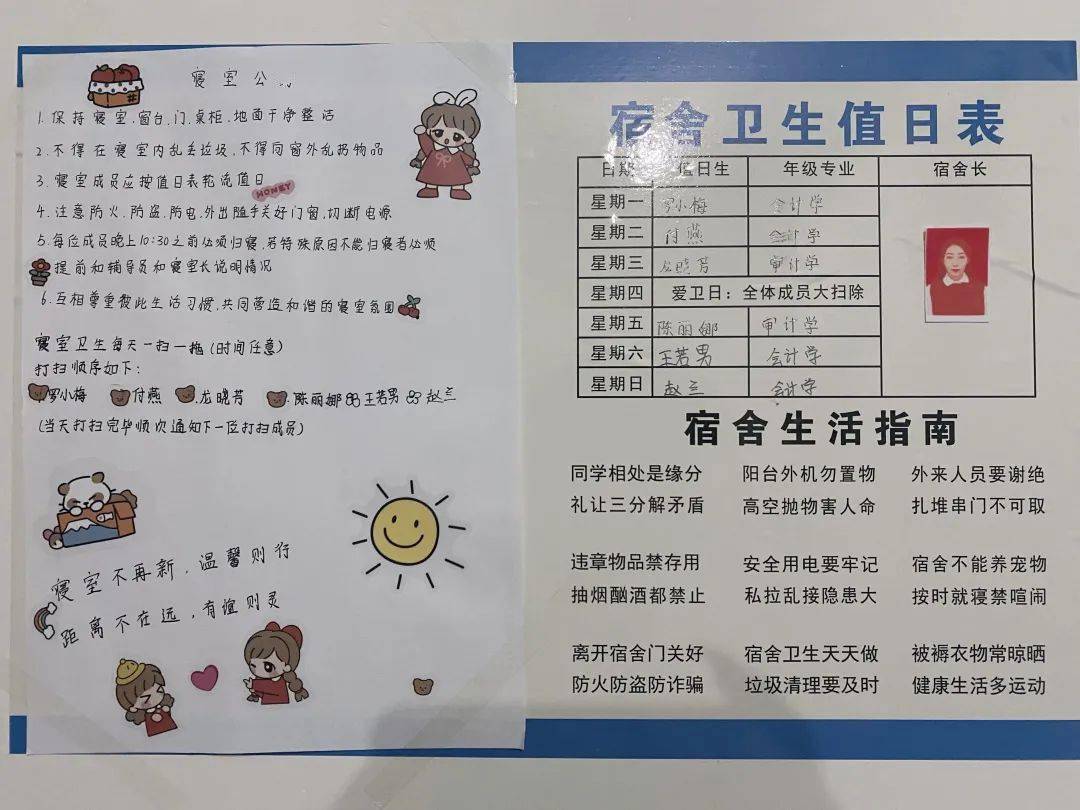 寝室公
1.保持寝室.窗台.门.桌柜.地面干净整洁
2.不得在寝室内乱丢垃圾.不得向窗外乱扔物品
3.寝室成员应按值日表轮流值日
HONEY
4.注意防火.防盗.防电.外出随手关好门窗,切断电源
5.每位成员晚上10:30之前必须归寝,若特殊原因不能归寝者必须
提前和辅导员和寝室长说明情况
6.互相尊重彼此生活习惯,共同营造和谐的寝室氛围
寝室卫生每天一扫一拖(时间任意)
打扫顺序如下:
罗小梅 付燕 .龙晓芳 .陈丽娜 王若男 赵兰
(当天打扫完毕顺次通知下一位打扫成员)
寝室不再新.温馨则行
距离不在远,有谊则灵
宿舍卫生值日表
日期 值日生 年级专业 宿舍长
星期一 罗小梅 会计学
星期二 付燕 会计学
星期三 龙晓芳 审计学
星期四 爱卫日:全体成员大扫除
星期五 陈丽娜 审计学
星期六 王若男 会计学
星期日 赵兰 会计学
宿舍生活指南
同学相处是缘分 阳台外机勿置物 外来人员要谢绝
礼让三分解矛盾 高空抛物害人命 扎堆串门不可取
违章物品禁存用 安全用电要牢记 宿舍不能养宠物
抽烟酗酒都禁止 私拉乱接隐患大 按时就寝禁喧闹
离开宿舍门关好 宿舍卫生天天做 被褥衣物常晾晒
防火防盗防诈骗 垃圾清理要及时 健康生活多运动